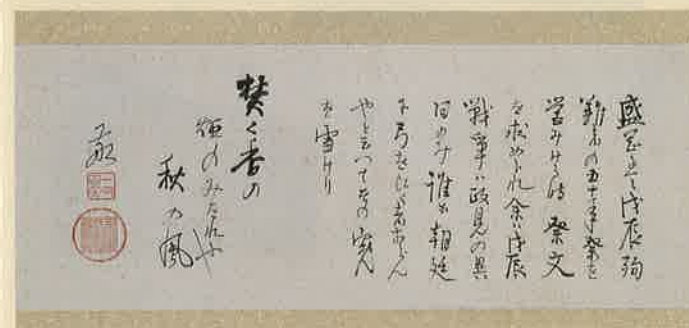 盛岡にて戊辰殉
難者の五十年祭を
営みける時祭文
を求められ余ハ戊辰
戦争ハ政見の異
同のみ誰か朝廷
に弓をひく者あらん
やといつてその冤
を雪けり
焚く香の
烟のみたれや
秋の風
敬